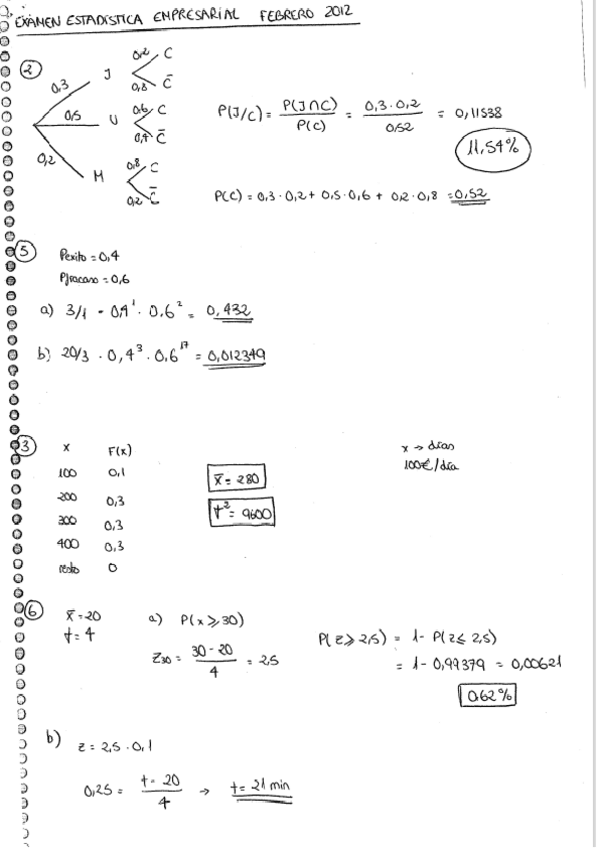 EXÁMEN ESTADÍSTICA EMPRESARIAL FEBRERO 2012
②
0,3 J 0,2 C
0,8 C̄
0,5 U 0,6 C
0,4 C̄
0,2 M 0,8 C
0,2 C̄
P(J/C) = P(J∩C) / P(C) = 0,3·0,2 / 0,52 = 0,11538
11,54%
P(C) = 0,3·0,2 + 0,5·0,6 + 0,2·0,8 = 0,52
⑤
Pexito = 0,4
Pfracaso = 0,6
a) 3/1 · 0,4¹ · 0,6² = 0,432
b) 20/3 · 0,4³ · 0,6¹⁷ = 0,012349
③
x F(x)
100 0,1
200 0,3
300 0,3
400 0,3
resto 0
x̄ = 280
σ² = 9600
x → días
100€/día
⑥
x̄ = 20
σ = 4
a) P(x ≥ 30)
Z30 = 30 - 20 / 4 = 2,5
P(z ≥ 2,5) = 1 - P(z ≤ 2,5)
= 1 - 0,99379 = 0,00621
0,62%
b)
z = 2,5 · 0,1
0,25 = t - 20 / 4 → t = 21 min